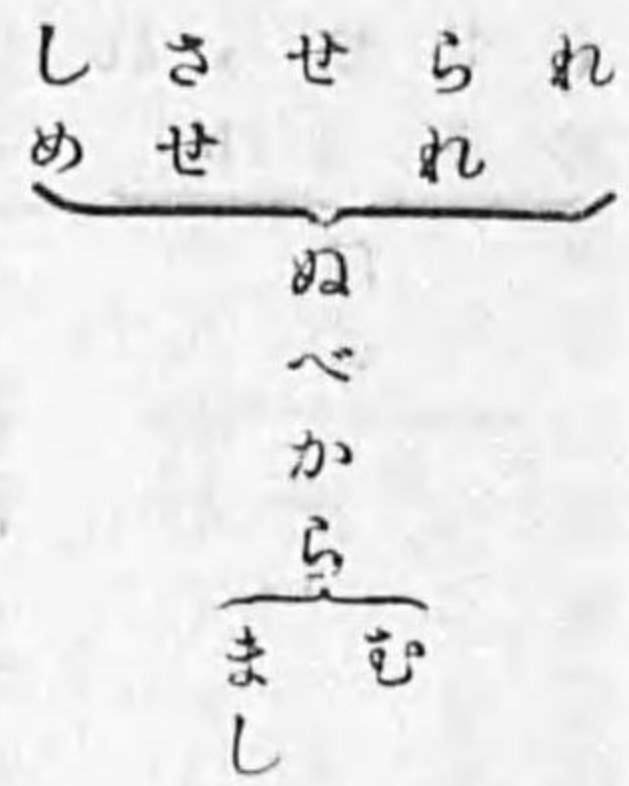 れ
られ
せ
させ
しめ
ぬべから
む
まし